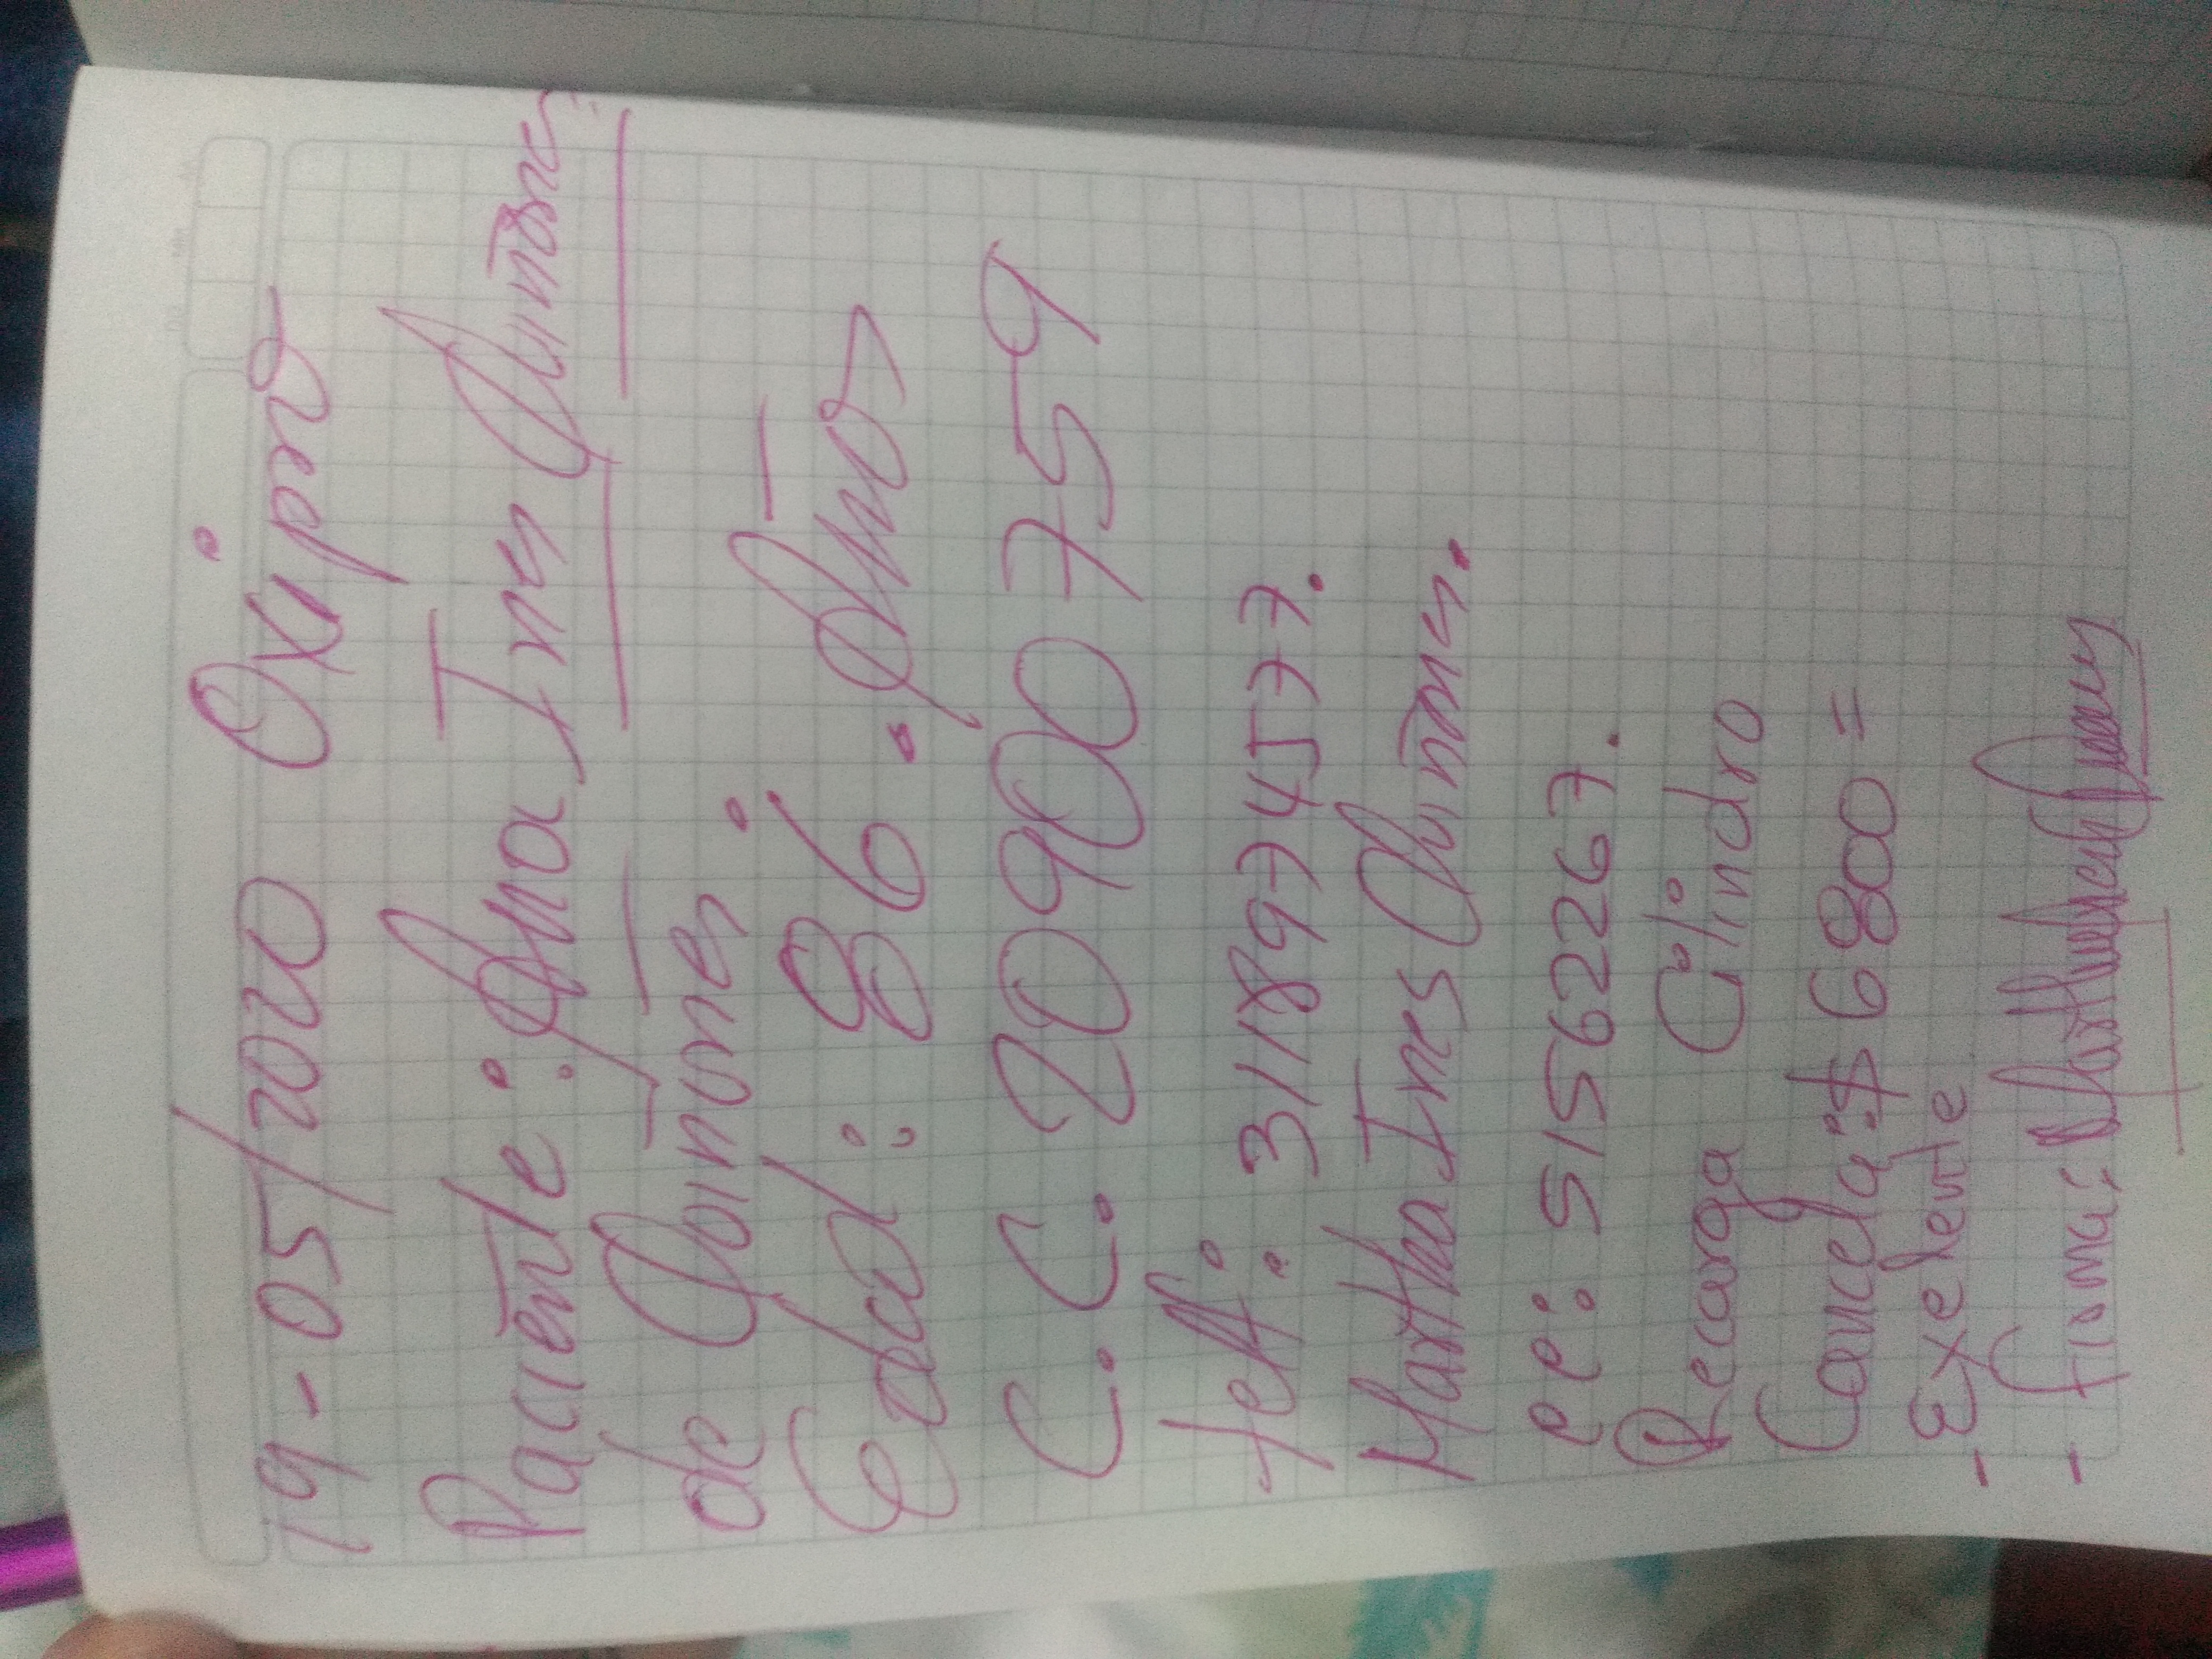 19-05/2020 Oxipro
Paciente: Ana Ines Quiñones
de Quiñones.
Edad: 86. Años
C.C. 20900759
telf: 3118974577.
Martha Ines Quiñones.
cc: 51562267.
Recarga Cilindro
Cancela: $ 6800=
- Exelente
- firma: